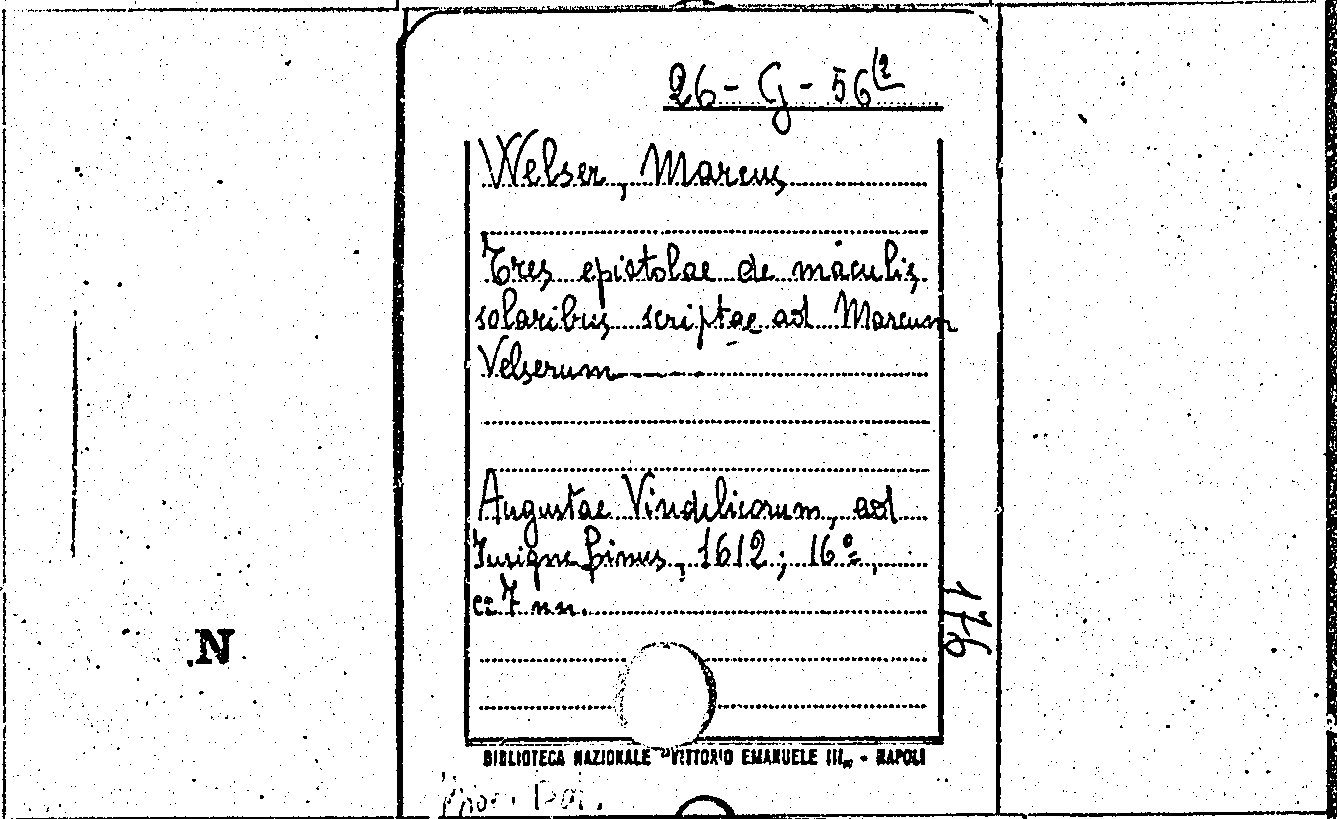 26 - G - 56(2
Welser, Marcus
Tres epistolae de maculis
solaribus scriptae ad Marcum
Velserum
Augustae Vindelicorum, ad
Insigne pinus, 1612; 16º,
cc 7 nn.
176
.N
BIBLIOTECA NAZIONALE "VITTORIO EMANUELE III„ - NAPOLI